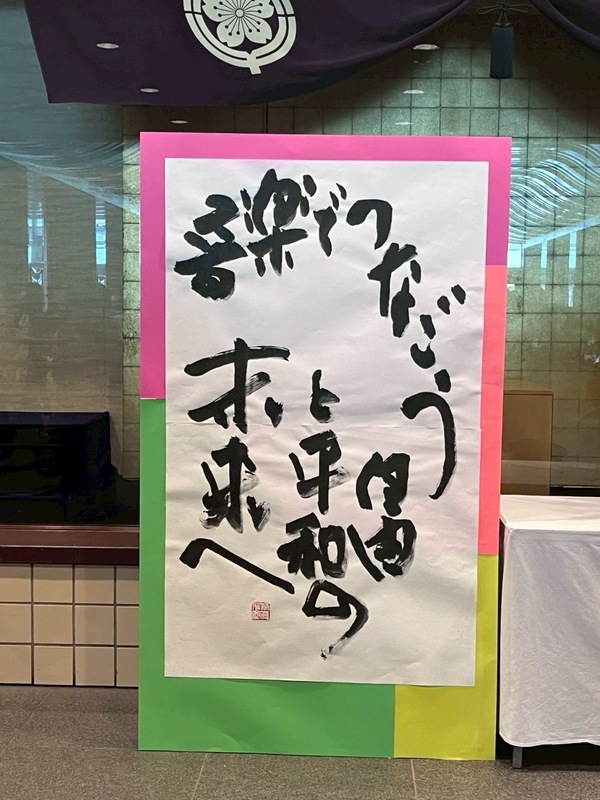 音楽でつなごう
自由
と平和の
未来へ